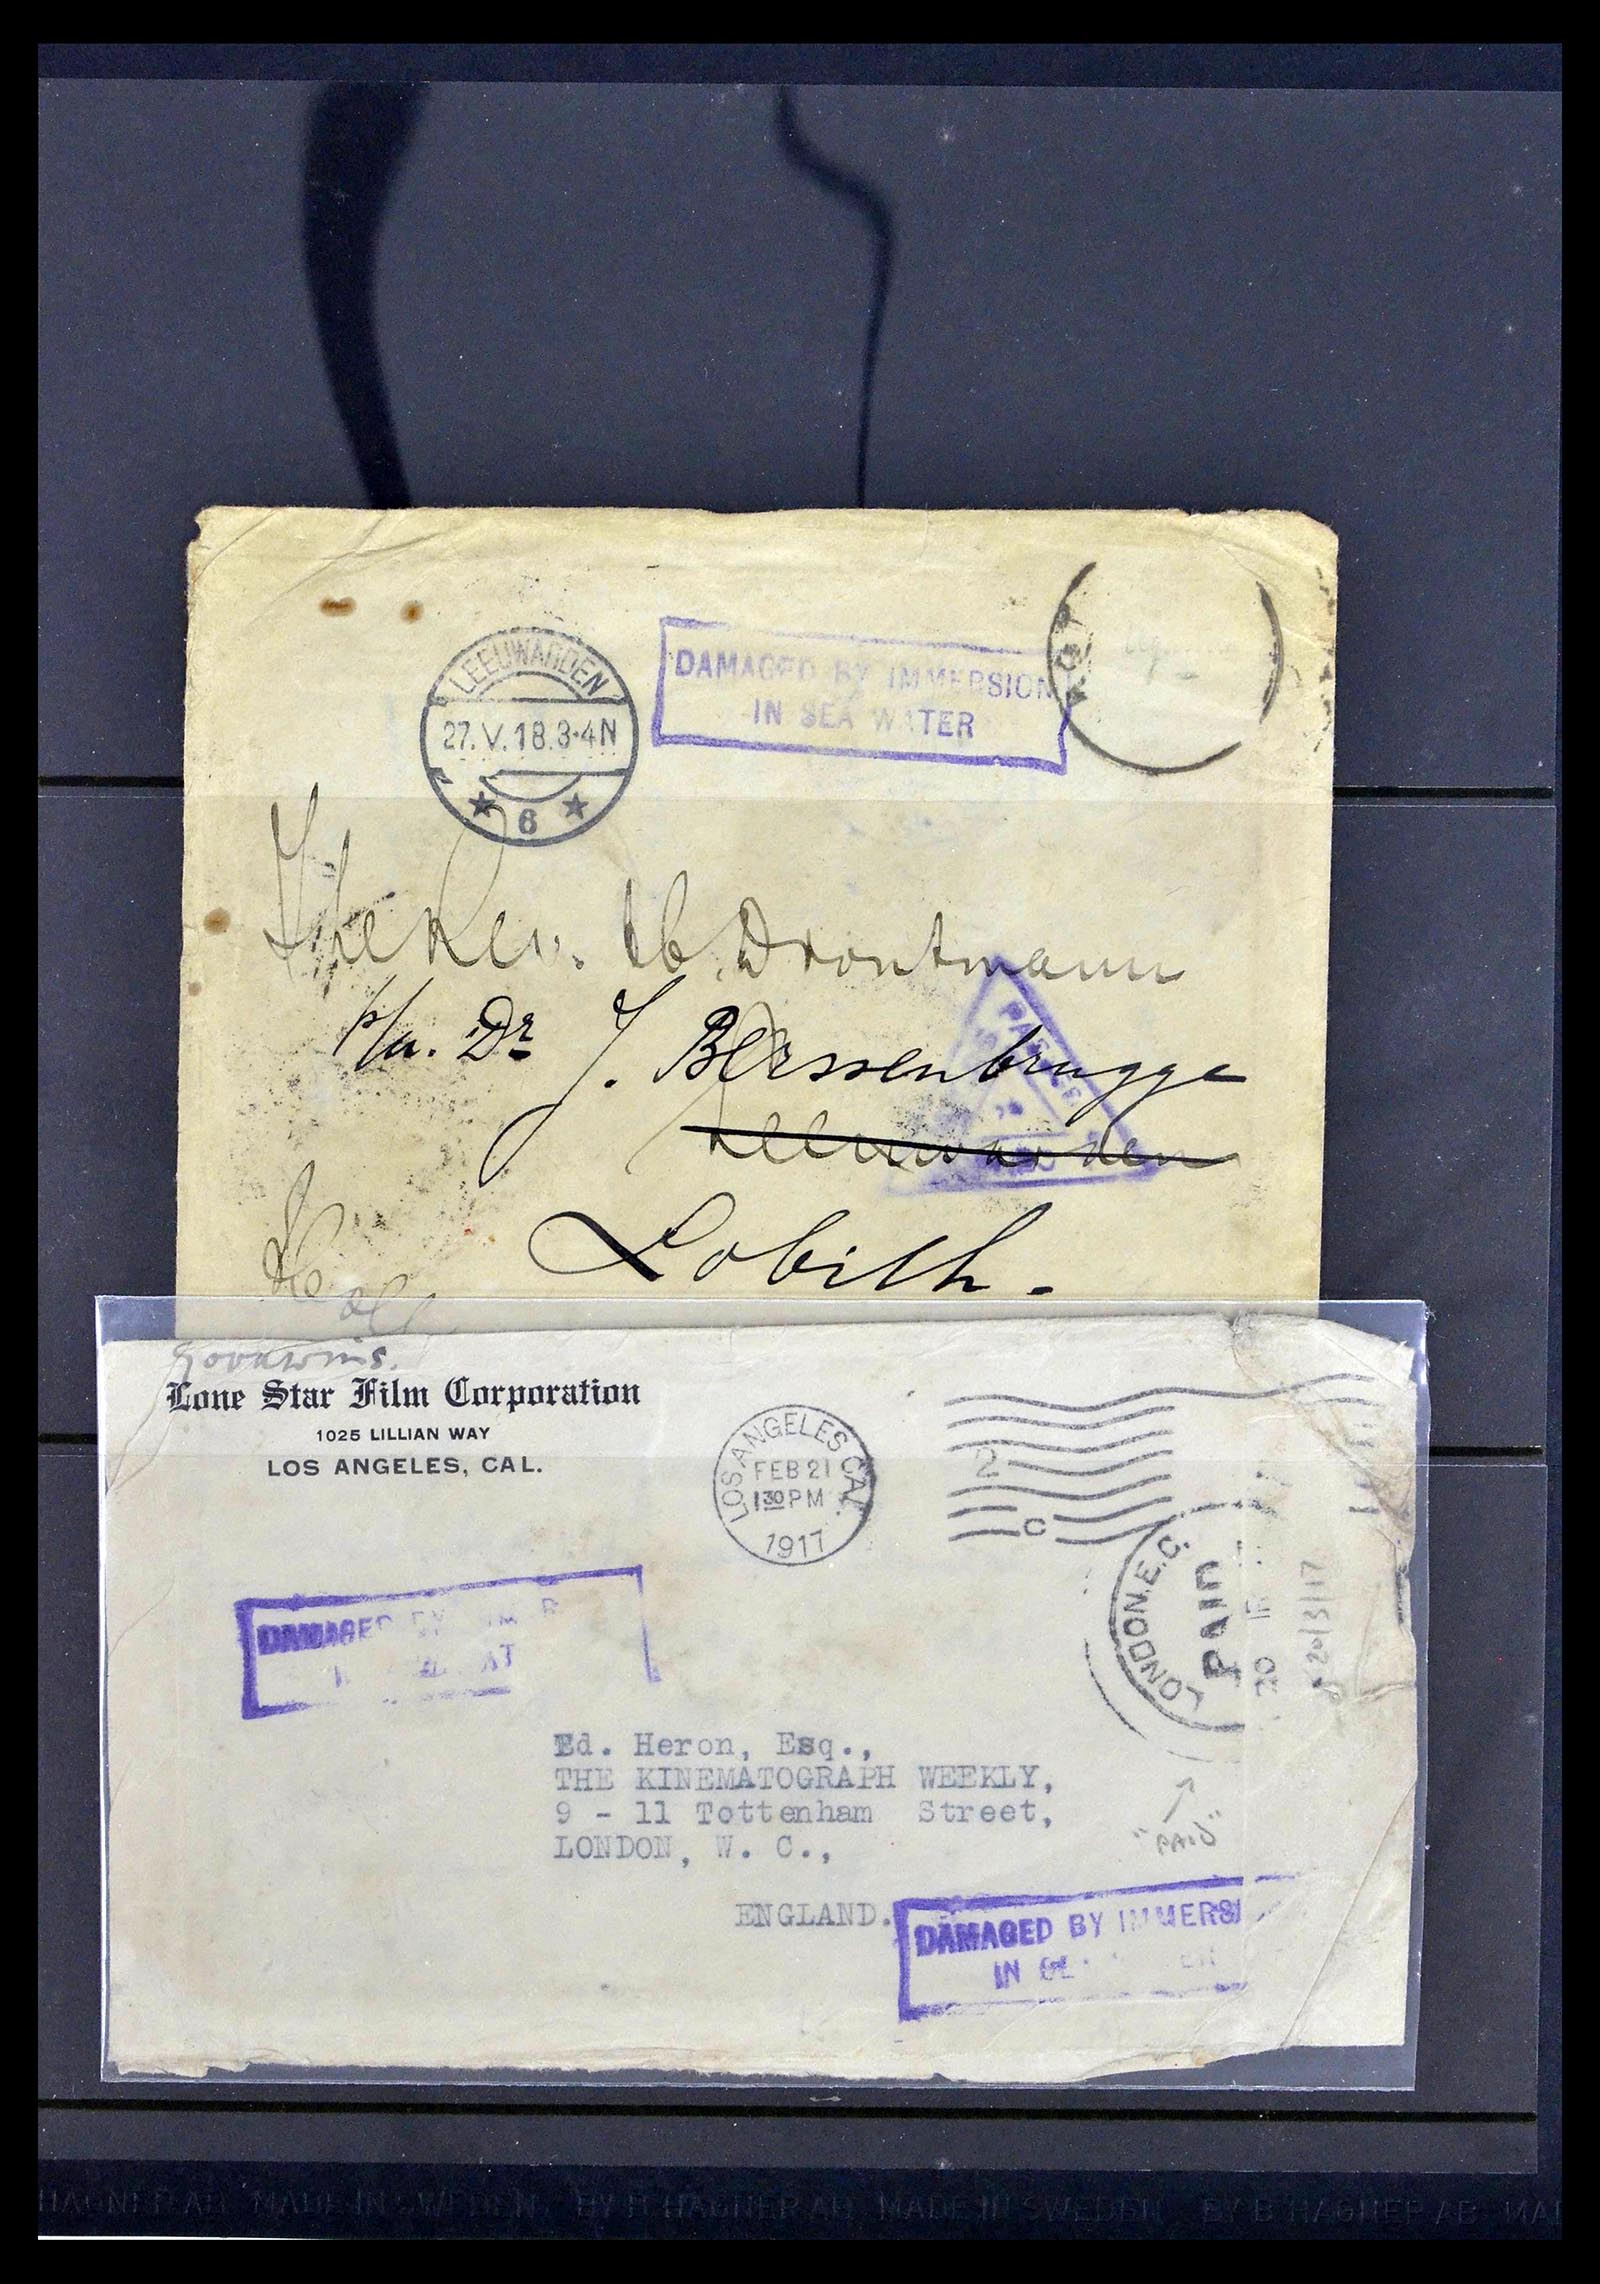 LEEUWARDEN
27.V.18.3-4N
6
DAMAGED BY IMMERSION
IN SEA WATER
The Rev. Drontmann
p/a. Dr J. Berssenbrugge
Leeuwarden
Lobith.
PASSED
Lone Star Film Corporation
1025 LILLIAN WAY
LOS ANGELES, CAL.
LOS ANGELES CAL.
FEB 21
1 30 PM
1917
2
C
LONDON.E.C.
PAID
20
20/3/17
DAMAGED BY
Ed. Heron, Esq.,
THE KINEMATOGRAPH WEEKLY,
9 - 11 Tottenham Street,
LONDON, W. C.,
ENGLAND.
"PAID"
DAMAGED BY IMMERSI
IN
HAGNER AB MADE IN SWEDEN BY B HAGNER AB MADE IN SWEDEN BY B HAGNER AB MA